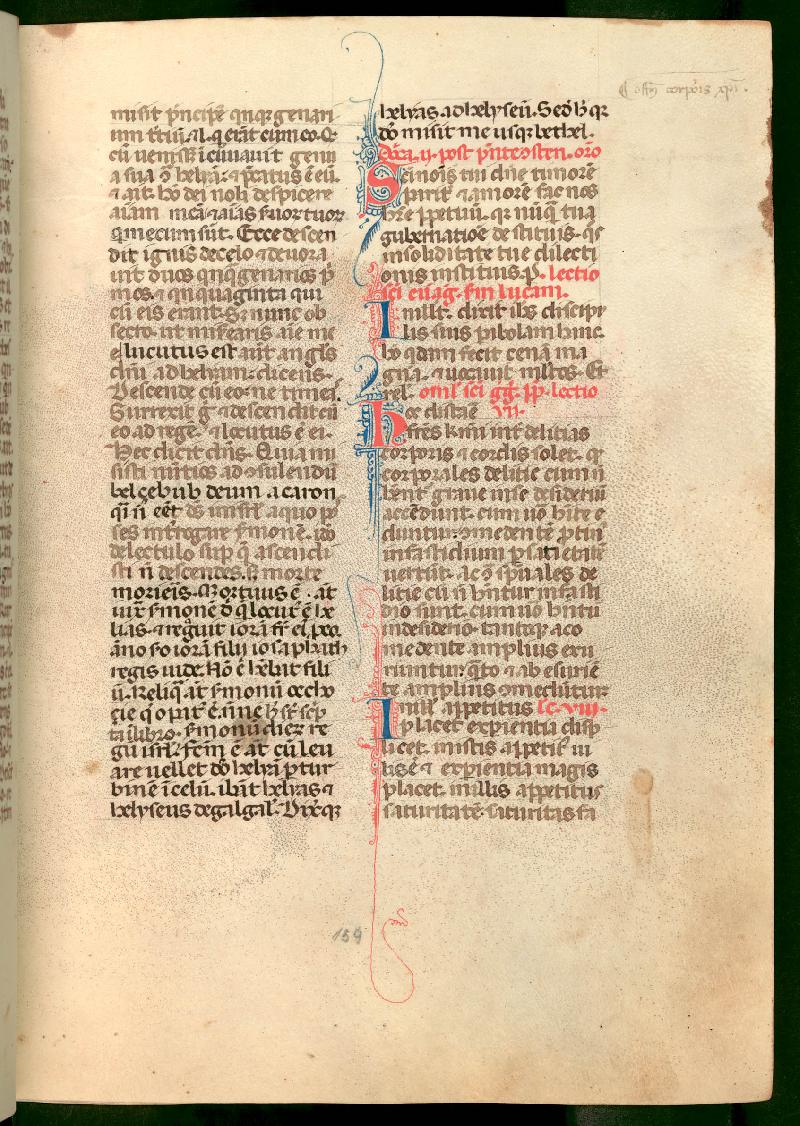 misit p̄ncipē quīqȝgenari
um t̄tiū. ⁊ .l. q̇ erāt cum eo. Q̇
cū uenis̄ȝ īcuruauit genu
a sua ō helyā: ⁊ p̄catus ē eū.
⁊ ait. hō dei noli despicere
aīam meā ⁊ aīas ẜuor̄ tuor̄
q̇ mecum sūt. Ecce descen
dit ignis de celo ⁊ deuora
uit duos qnqȝgenarios p̄
mos. ⁊ quīquaginta qui
cū eis erant. Sȝ nunc ob
secro. ut misearis aīe mee
locutus est aūt angl̄s
dn̄i ad helyam: dicens.
Descende cū eo: ne timeas.
Surrexit g̊ ⁊ descendit cū
eo ad regē. ⁊ locutus ē ei.
Hec dicit dn̄s. Quia mi
sisti nūtios ad ōsulendū
belçebub deum acaron.
q̇i n̄ eēt ds̄ in isrl̄ a quo pos
ses int̄rogare ẜmonē. idō
de lectulo sup̄ q̄ ascendi
sti n̄ descendes. sȝ morte
morieris. Mortuus ē. āt
iux̄ ẜmonē dn̄i q̄ locut̄ ē he
lias. ⁊ regūit iorā fr̄ ei p̄ eo.
āno s̄o iorā filii iosaphath
regis iude. Nō ē hēbat fili
ū. Reliq̄ āt ẜmonū ocho
çie q̄ op̄at̄ ē. nn̄e h̄ st̄ sc̄p
ta ī libro. ẜmonū dierȝ re
gū isrl̄. Fcm̄ ē āt cū leu
are uellet dn̄s helyā p̄ tur
binē ī celū. ibāt helyas ⁊
helyseus de galgal. Dixitqȝ
helyas ad helyseū. Sede h̄ qȝ
dn̄s misit me usqȝ bethel.
Dn̄ca .ii. post p̄ntecosten. or̄o
Sci nois tui dn̄e timorē
pariť ⁊ amorē fac nos
h̄re p̄petuū. qȝ nūq̄ tua
gubernatiōe destituis. q̄s
in soliditate tue dilecti
onis instituis. p̄. lectio
sci euāg. s̄m lucam.
In illt̄. dixit ihs̄ discipu
lis suis pābolam hanc.
hō qdam fecit cenā ma
gnā. ⁊ uocauit multos. Et
rel. omīl̄. sci gg̊. pp̄. lectio
Hoc distāe .vii.
fr̄es k̄mi int̄ delitias
corporis ⁊ cordis solet. qȝ
corporales delitie cum n̄
hēnt̄ graue in se desideriū
accēdunt. cum uo hīte e
duntur: ōmedentē p̄tin̄
in fastidium p̄ satietatē
uertūt. ac ō sp̄uales de
litie cū n̄ hn̄tur in fasti
dio sunt. cum uō hn̄tur
in desiderio. tantoqȝ a co
medente amplius exu
riuntur: q̄to ⁊ ab esuriē
te amplius ōmedūtur
In illis appetitus lc̄. viii.
placet exp̄ientia disp
licet. in istis appetit̄ ui
lis ē ⁊ exp̄ientia magis
placet. in illis appetitus
saturitatē. saturitas fa
¶ offm̄ corporis xp̄i.
159